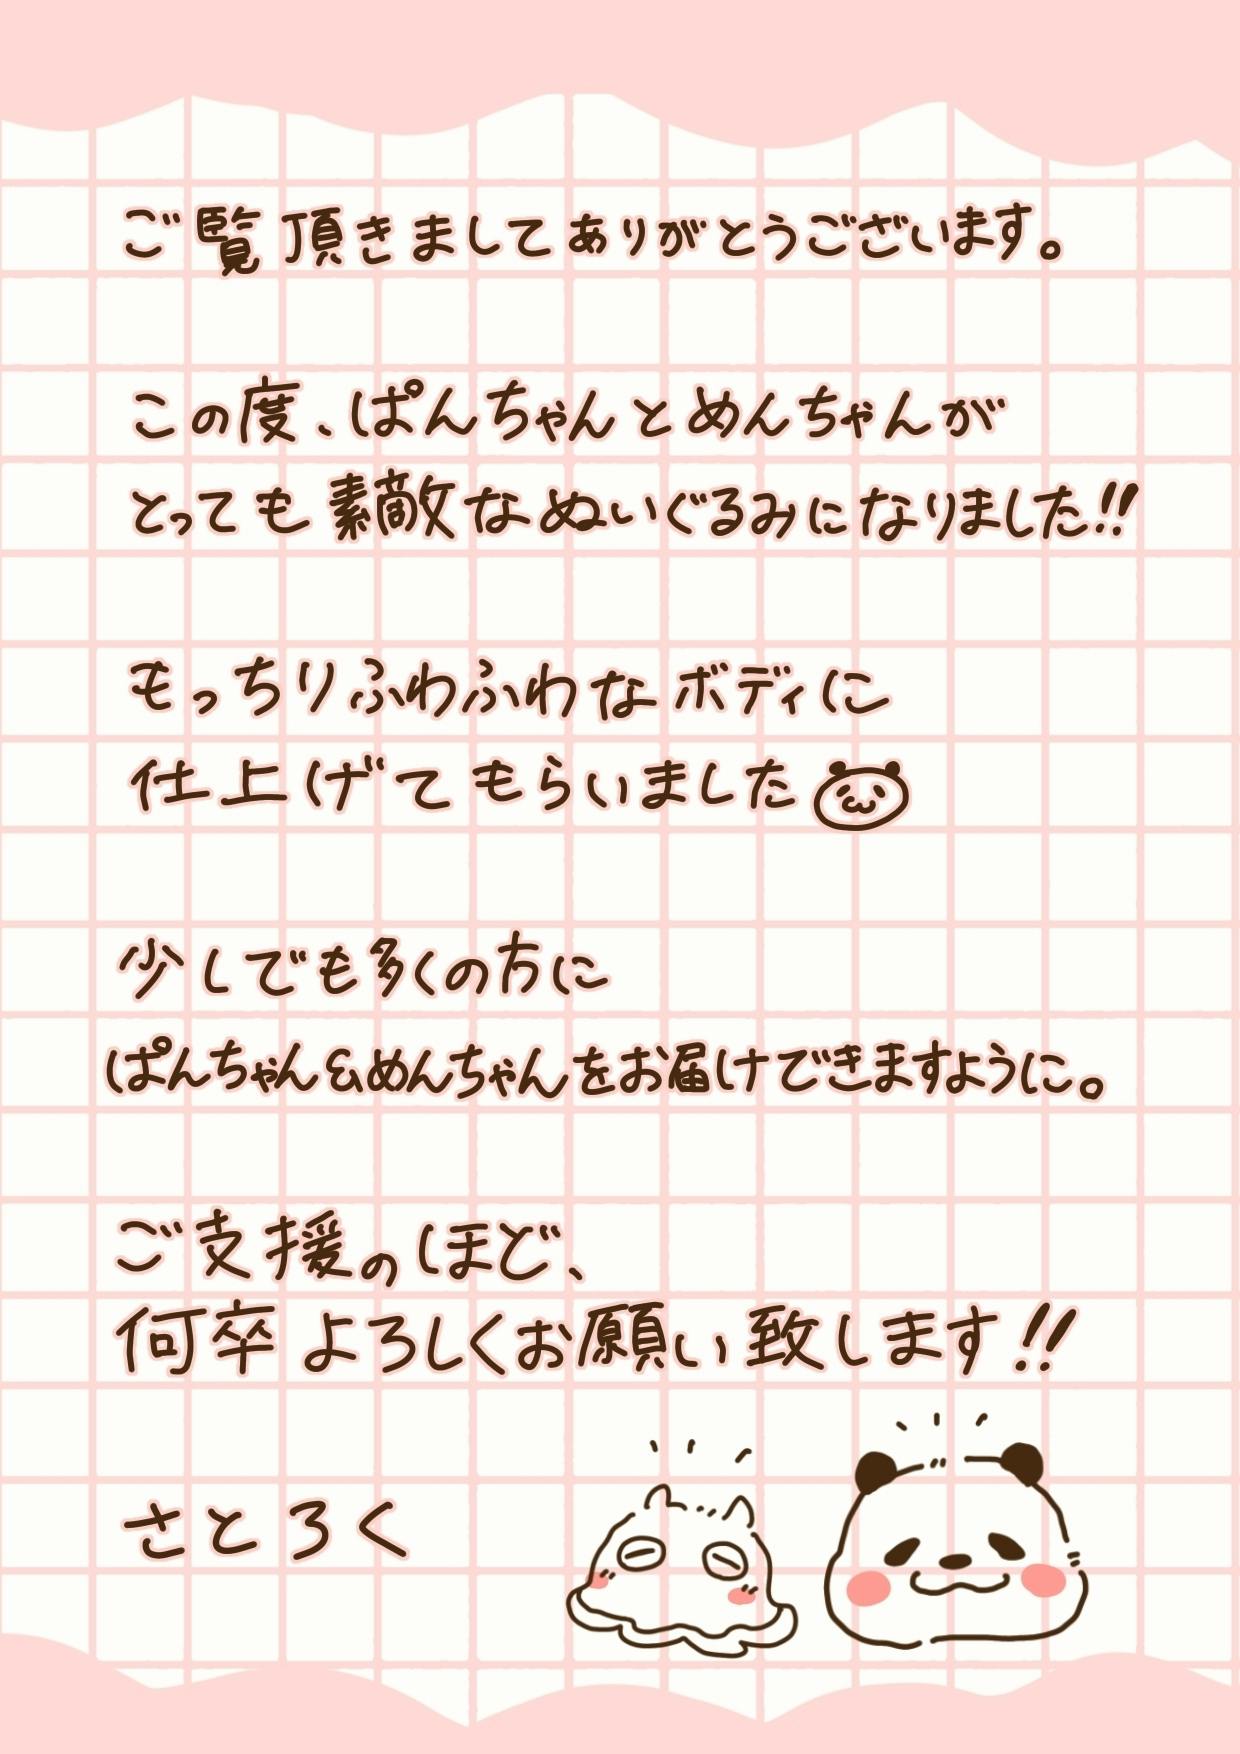 ご覧頂きましてありがとうございます。
この度、ぱんちゃんとめんちゃんが
とっても素敵なぬいぐるみになりました!!
もっちりふわふわなボディに
仕上げてもらいました
少しでも多くの方に
ぱんちゃん&めんちゃんをお届けできますように。
ご支援のほど、
何卒よろしくお願い致します!!
さとろく